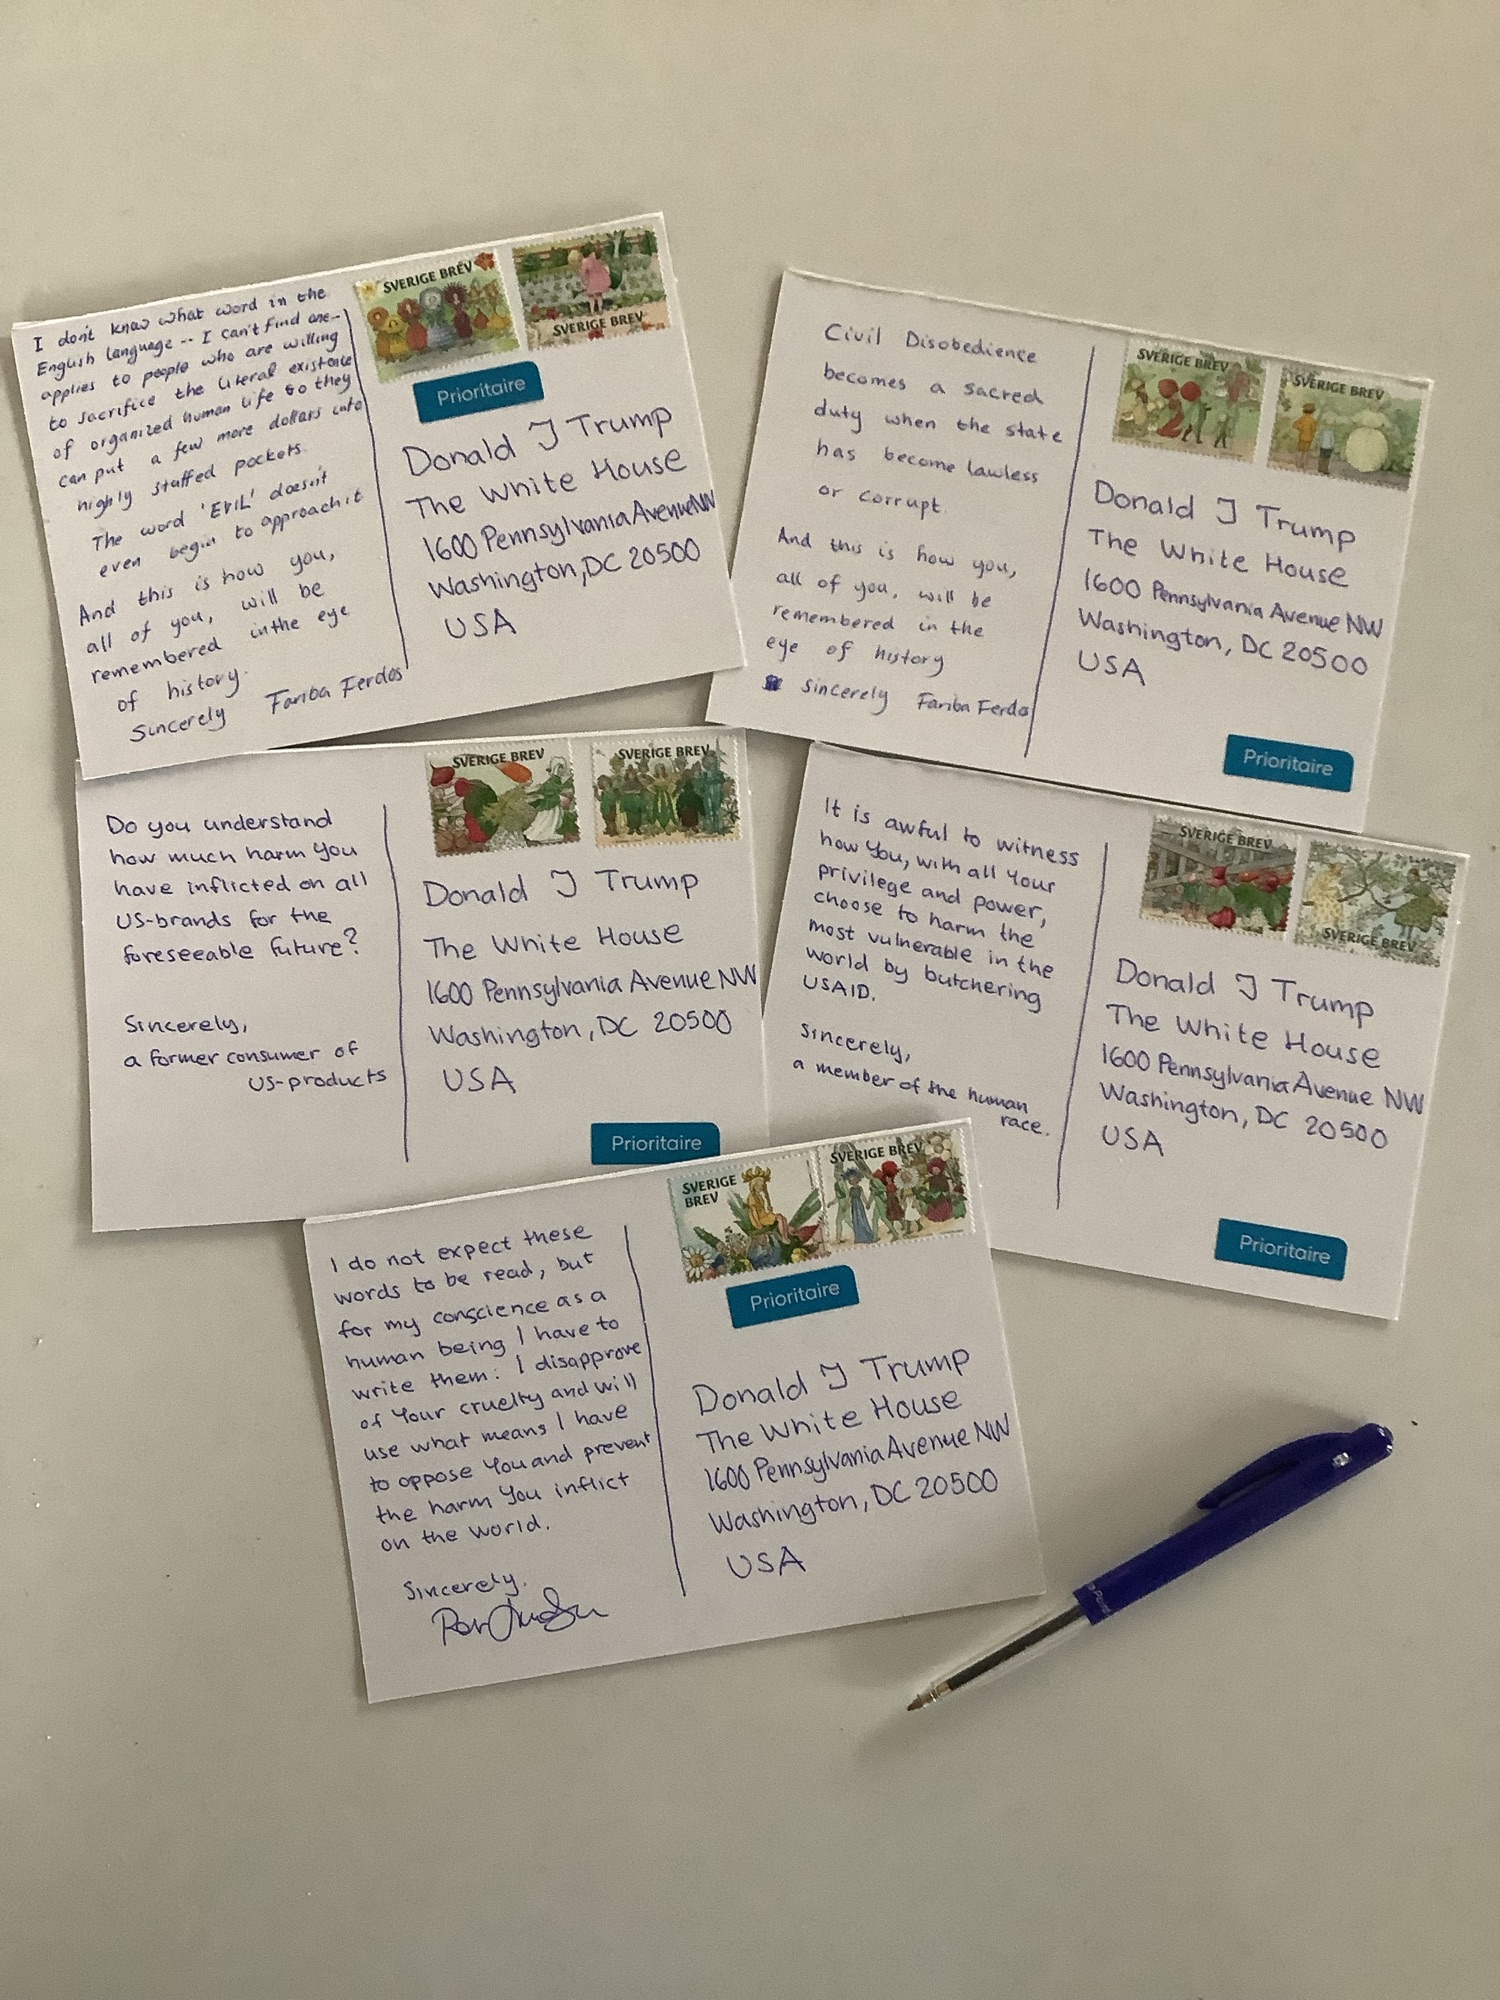 I don't know what word in the
English language -- I can't find one-
applies to people who are willing
to sacrifice the literal existence
of organized human life so they
can put a few more dollars into
highly stuffed pockets.
The word 'EVIL' doesn't
even begin to approach it
And this is how you,
all of you, will be
remembered in the eye
of history.
Sincerely Fariba Ferdos
SVERIGE BREV
SVERIGE BREV
Prioritaire
Donald J Trump
The White House
1600 Pennsylvania Avenue NW
Washington, DC 20500
USA
Civil Disobedience
becomes a sacred
duty when the state
has become lawless
or corrupt.
And this is how you,
all of you, will be
remembered in the
eye of history
Sincerely Fariba Ferdos
SVERIGE BREV
SVERIGE BREV
Donald J Trump
The White House
1600 Pennsylvania Avenue NW
Washington, DC 20500
USA
Prioritaire
Do you understand
how much harm you
have inflicted on all
US-brands for the
foreseeable future?
Sincerely,
a former consumer of
US-products
SVERIGE BREV
SVERIGE BREV
Donald J Trump
The White House
1600 Pennsylvania Avenue NW
Washington, DC 20500
USA
Prioritaire
It is awful to witness
how You, with all Your
privilege and power,
choose to harm the
most vulnerable in the
world by butchering
USAID.
Sincerely,
a member of the human
race.
SVERIGE BREV
SVERIGE BREV
Donald J Trump
The White House
1600 Pennsylvania Avenue NW
Washington, DC 20500
USA
Prioritaire
I do not expect these
words to be read, but
for my conscience as a
human being I have to
write them: I disapprove
of Your cruelty and will
use what means I have
to oppose You and prevent
the harm You inflict
on the world.
Sincerely.
SVERIGE
BREV
SVERIGE BREV
Prioritaire
Donald J Trump
The White House
1600 Pennsylvania Avenue NW
Washington, DC 20500
USA